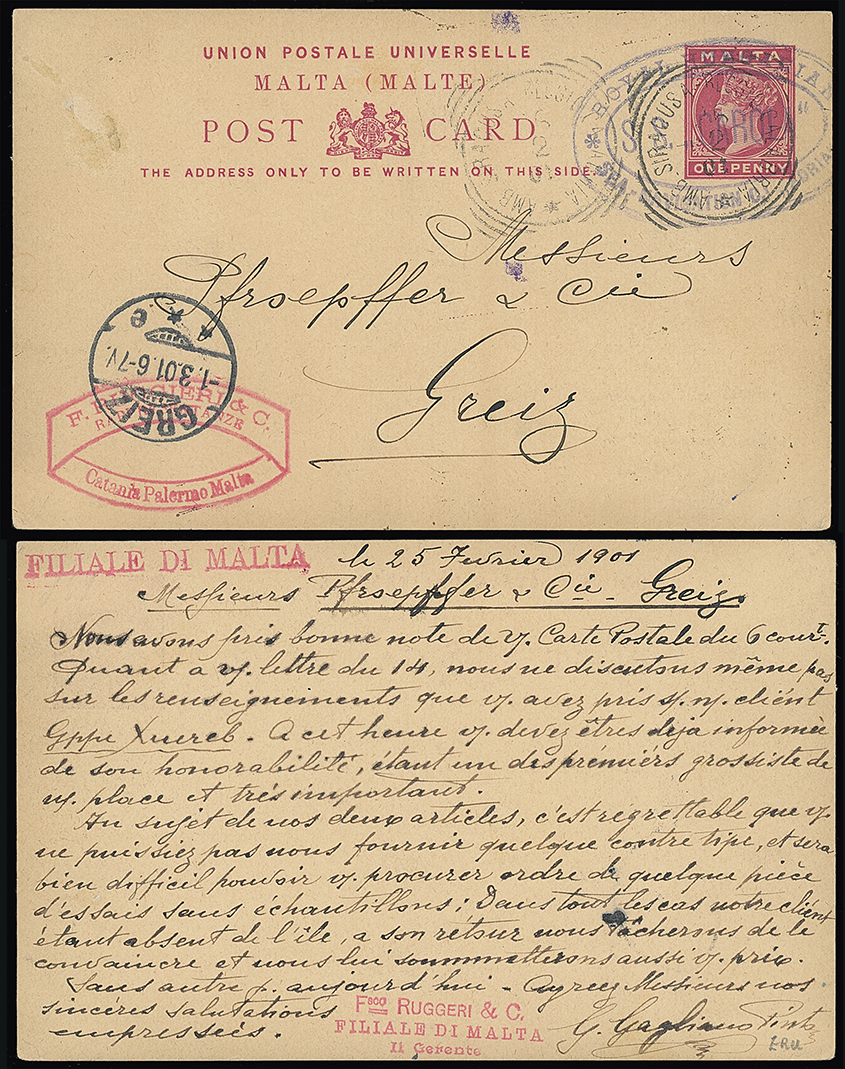 UNION POSTALE UNIVERSELLE
MALTA (MALTE)
POST CARD
THE ADDRESS ONLY TO BE WRITTEN ON THIS SIDE.
MALTA
ONE PENNY
ROYAL
AMB. SIRACUSA
AMB. SIRACUSA
Messieurs
Pfroepffer & Cie
Greiz
GREIZ
-1.3.01.6-7V.
* * e
F. & C.
Catania Palermo Malta
FILIALE DI MALTA
le 25 Fevrier 1901
Messieurs Pfroepffer & Cie - Greiz
Nous avons pris bonne note de v/. Carte Postale du 6 court.
Quant a v/. lettre du 14, nous ne discutons même pas
sur les renseignements que v/. avez pris s/. n/. cliént
Gppe Xuereb. A cet heure v/. devez êtres deja informée
de son honorabilité, étant un des prémiérs grossiste de
n/. place et trés important.
Au sujet de nos deux articles, c'est régrettable que v/.
ne puissiez pas nous fournir quelque contre tipe, et sera
bien difficil pouvoir v/. procurer ordre de quelque piéce
d'essais sans échantillons; Dans tout les cas notre cliént
étant absent de l'île, a son rétour nous tâcherons de le
convaincre et nous lui soummetterons aussi v/. prix.
Sans autre p. aujourd'hui - Agreez Messieurs nos
sincéres salutations
empressées.
Fsco RUGGERI & C.
FILIALE DI MALTA
Il Gerente
G. Gagliano Pinto